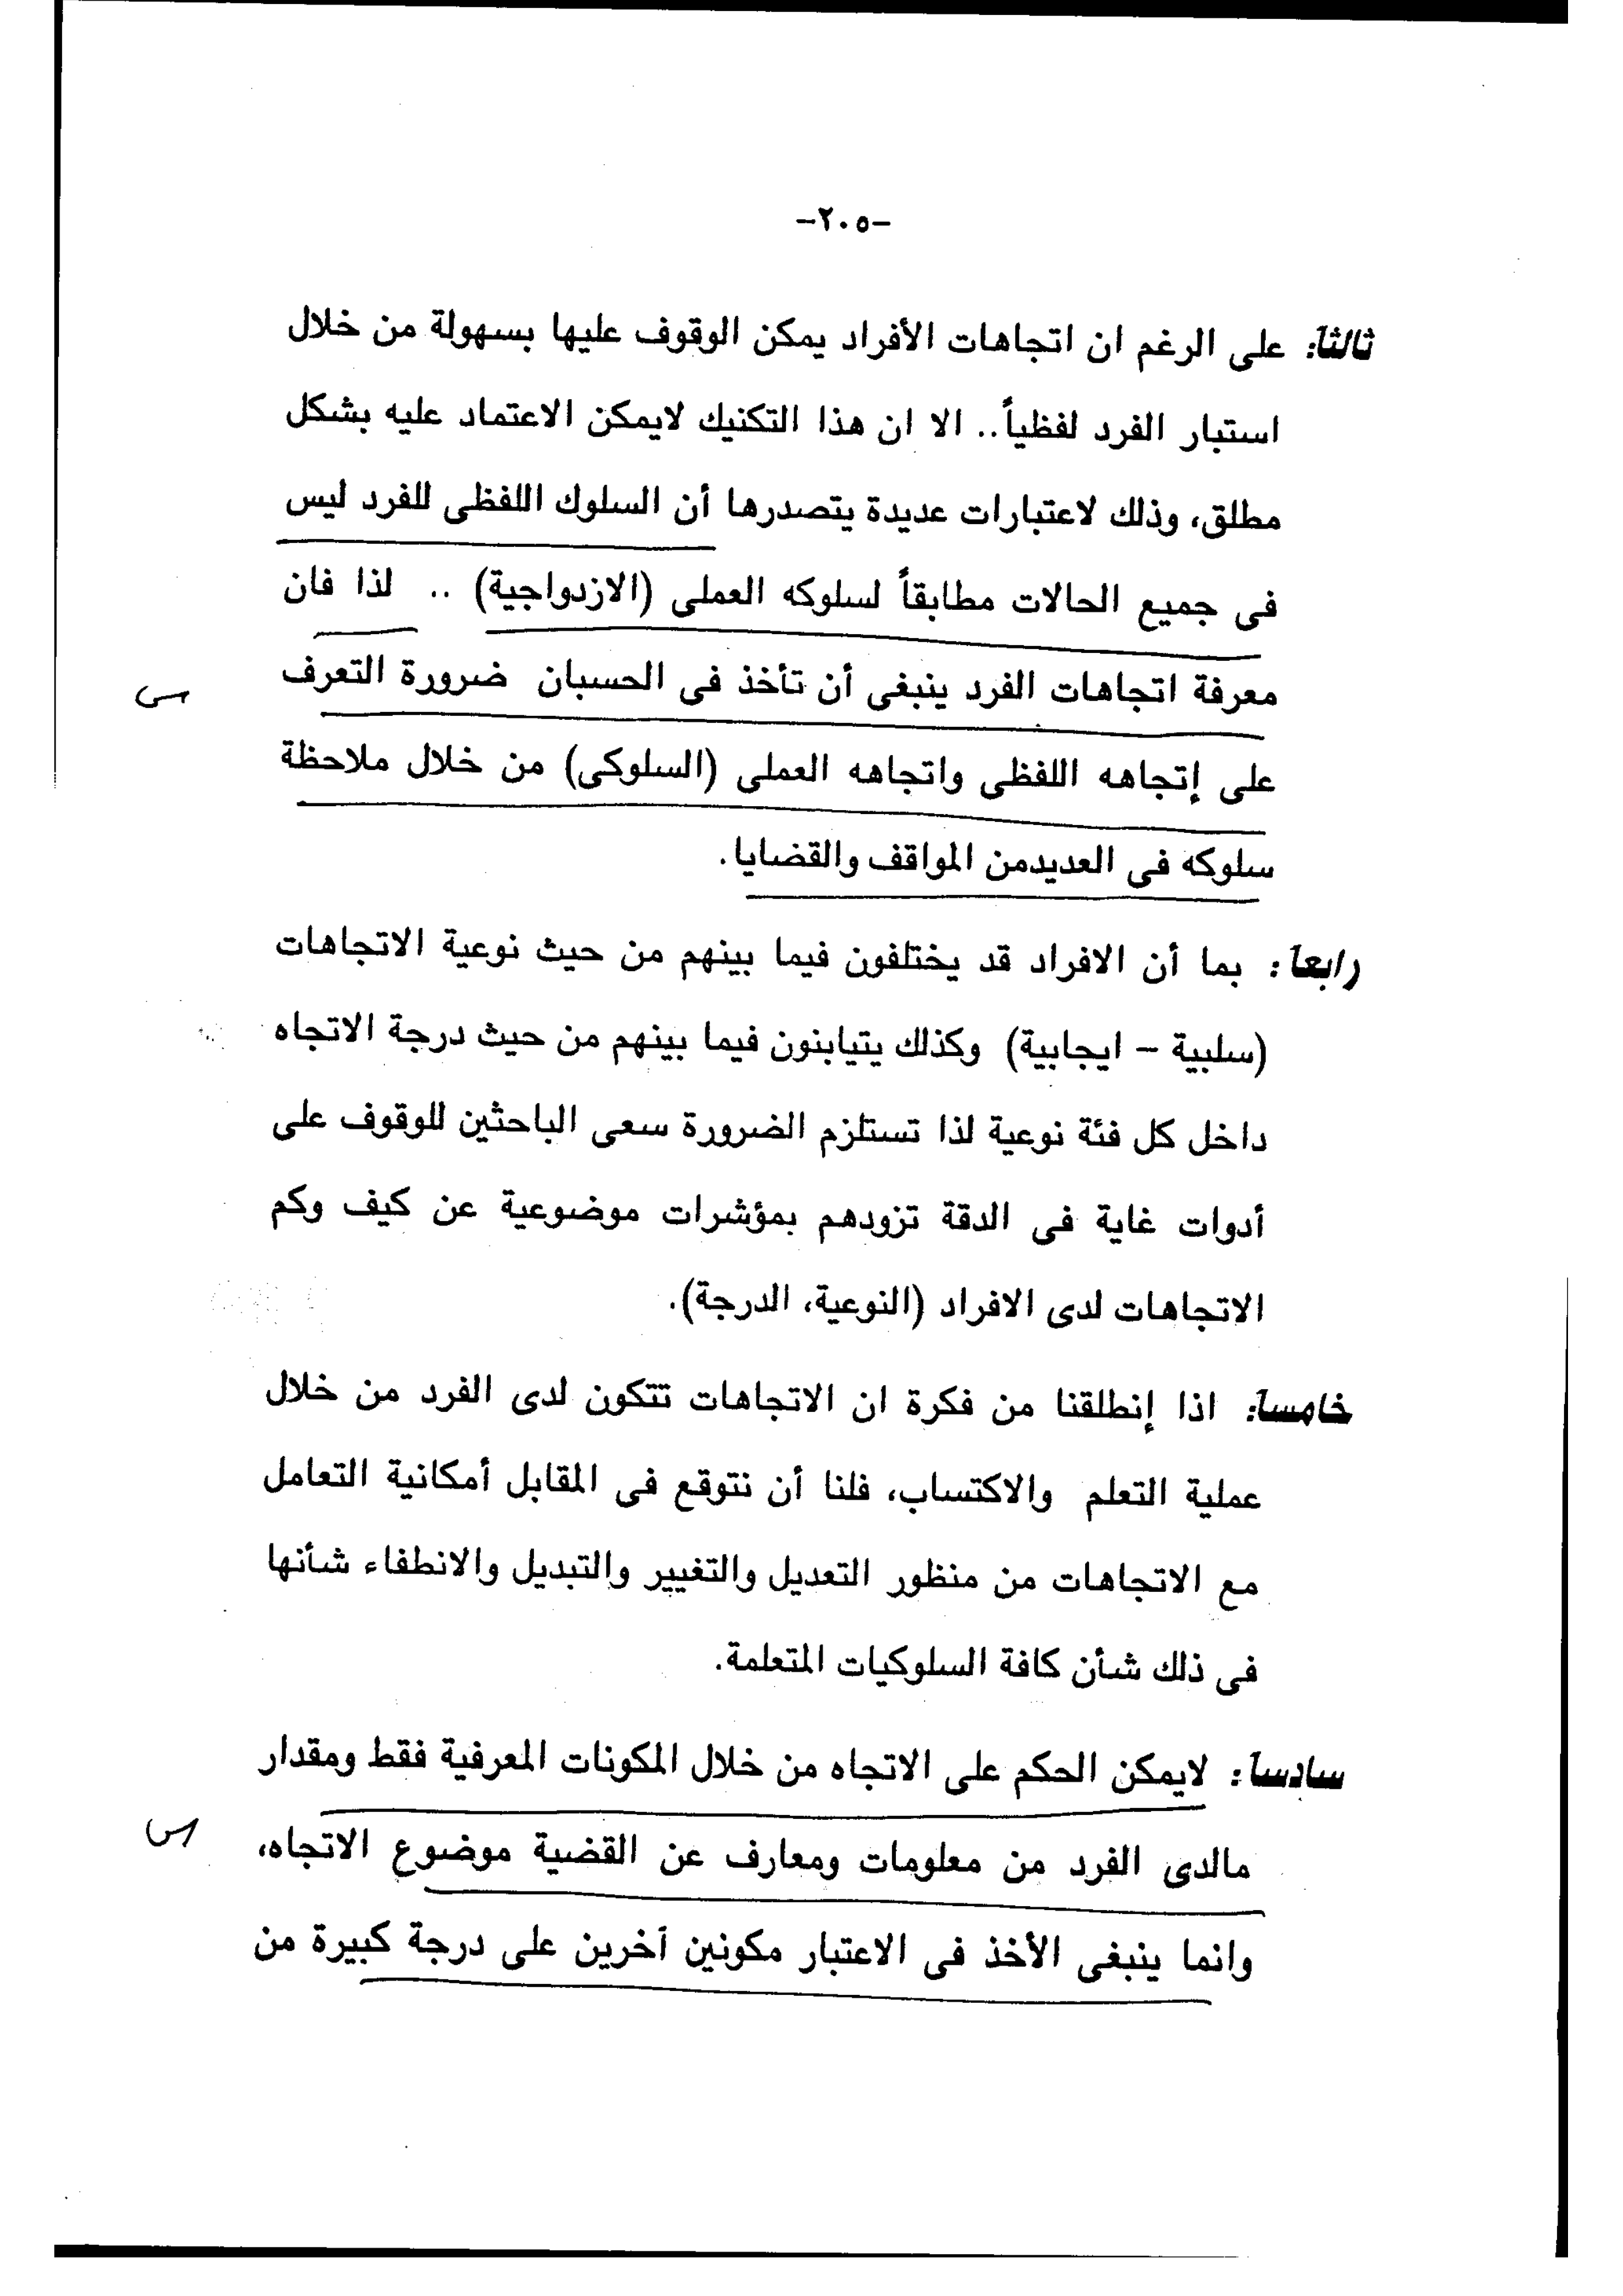 -٢٠٥-
ثالثاً: على الرغم ان اتجاهات الأفراد يمكن الوقوف عليها بسهولة من خلال
استبار الفرد لفظياً.. الا ان هذا التكنيك لايمكن الاعتماد عليه بشكل
مطلق، وذلك لاعتبارات عديدة يتصدرها أن السلوك اللفظى للفرد ليس
فى جميع الحالات مطابقاً لسلوكه العملى (الازدواجية) .. لذا فان
معرفة اتجاهات الفرد ينبغى أن تأخذ فى الحسبان ضرورة التعرف
على إتجاهه اللفظى واتجاهه العملى (السلوكى) من خلال ملاحظة
سلوكه فى العديدمن المواقف والقضايا.
رابعاً: بما أن الافراد قد يختلفون فيما بينهم من حيث نوعية الاتجاهات
(سلبية - ايجابية) وكذلك يتيابنون فيما بينهم من حيث درجة الاتجاه
داخل كل فئة نوعية لذا تستلزم الضرورة سعى الباحثين للوقوف على
أدوات غاية فى الدقة تزودهم بمؤشرات موضوعية عن كيف وكم
الاتجاهات لدى الافراد (النوعية، الدرجة).
خامساً: اذا إنطلقنا من فكرة ان الاتجاهات تتكون لدى الفرد من خلال
عملية التعلم والاكتساب، فلنا أن نتوقع فى المقابل أمكانية التعامل
مع الاتجاهات من منظور التعديل والتغيير والتبديل والانطفاء شأنها
فى ذلك شأن كافة السلوكيات المتعلمة.
سادساً: لايمكن الحكم على الاتجاه من خلال المكونات المعرفية فقط ومقدار
مالدى الفرد من معلومات ومعارف عن القضية موضوع الاتجاه،
وانما ينبغى الأخذ فى الاعتبار مكونين آخرين على درجة كبيرة من